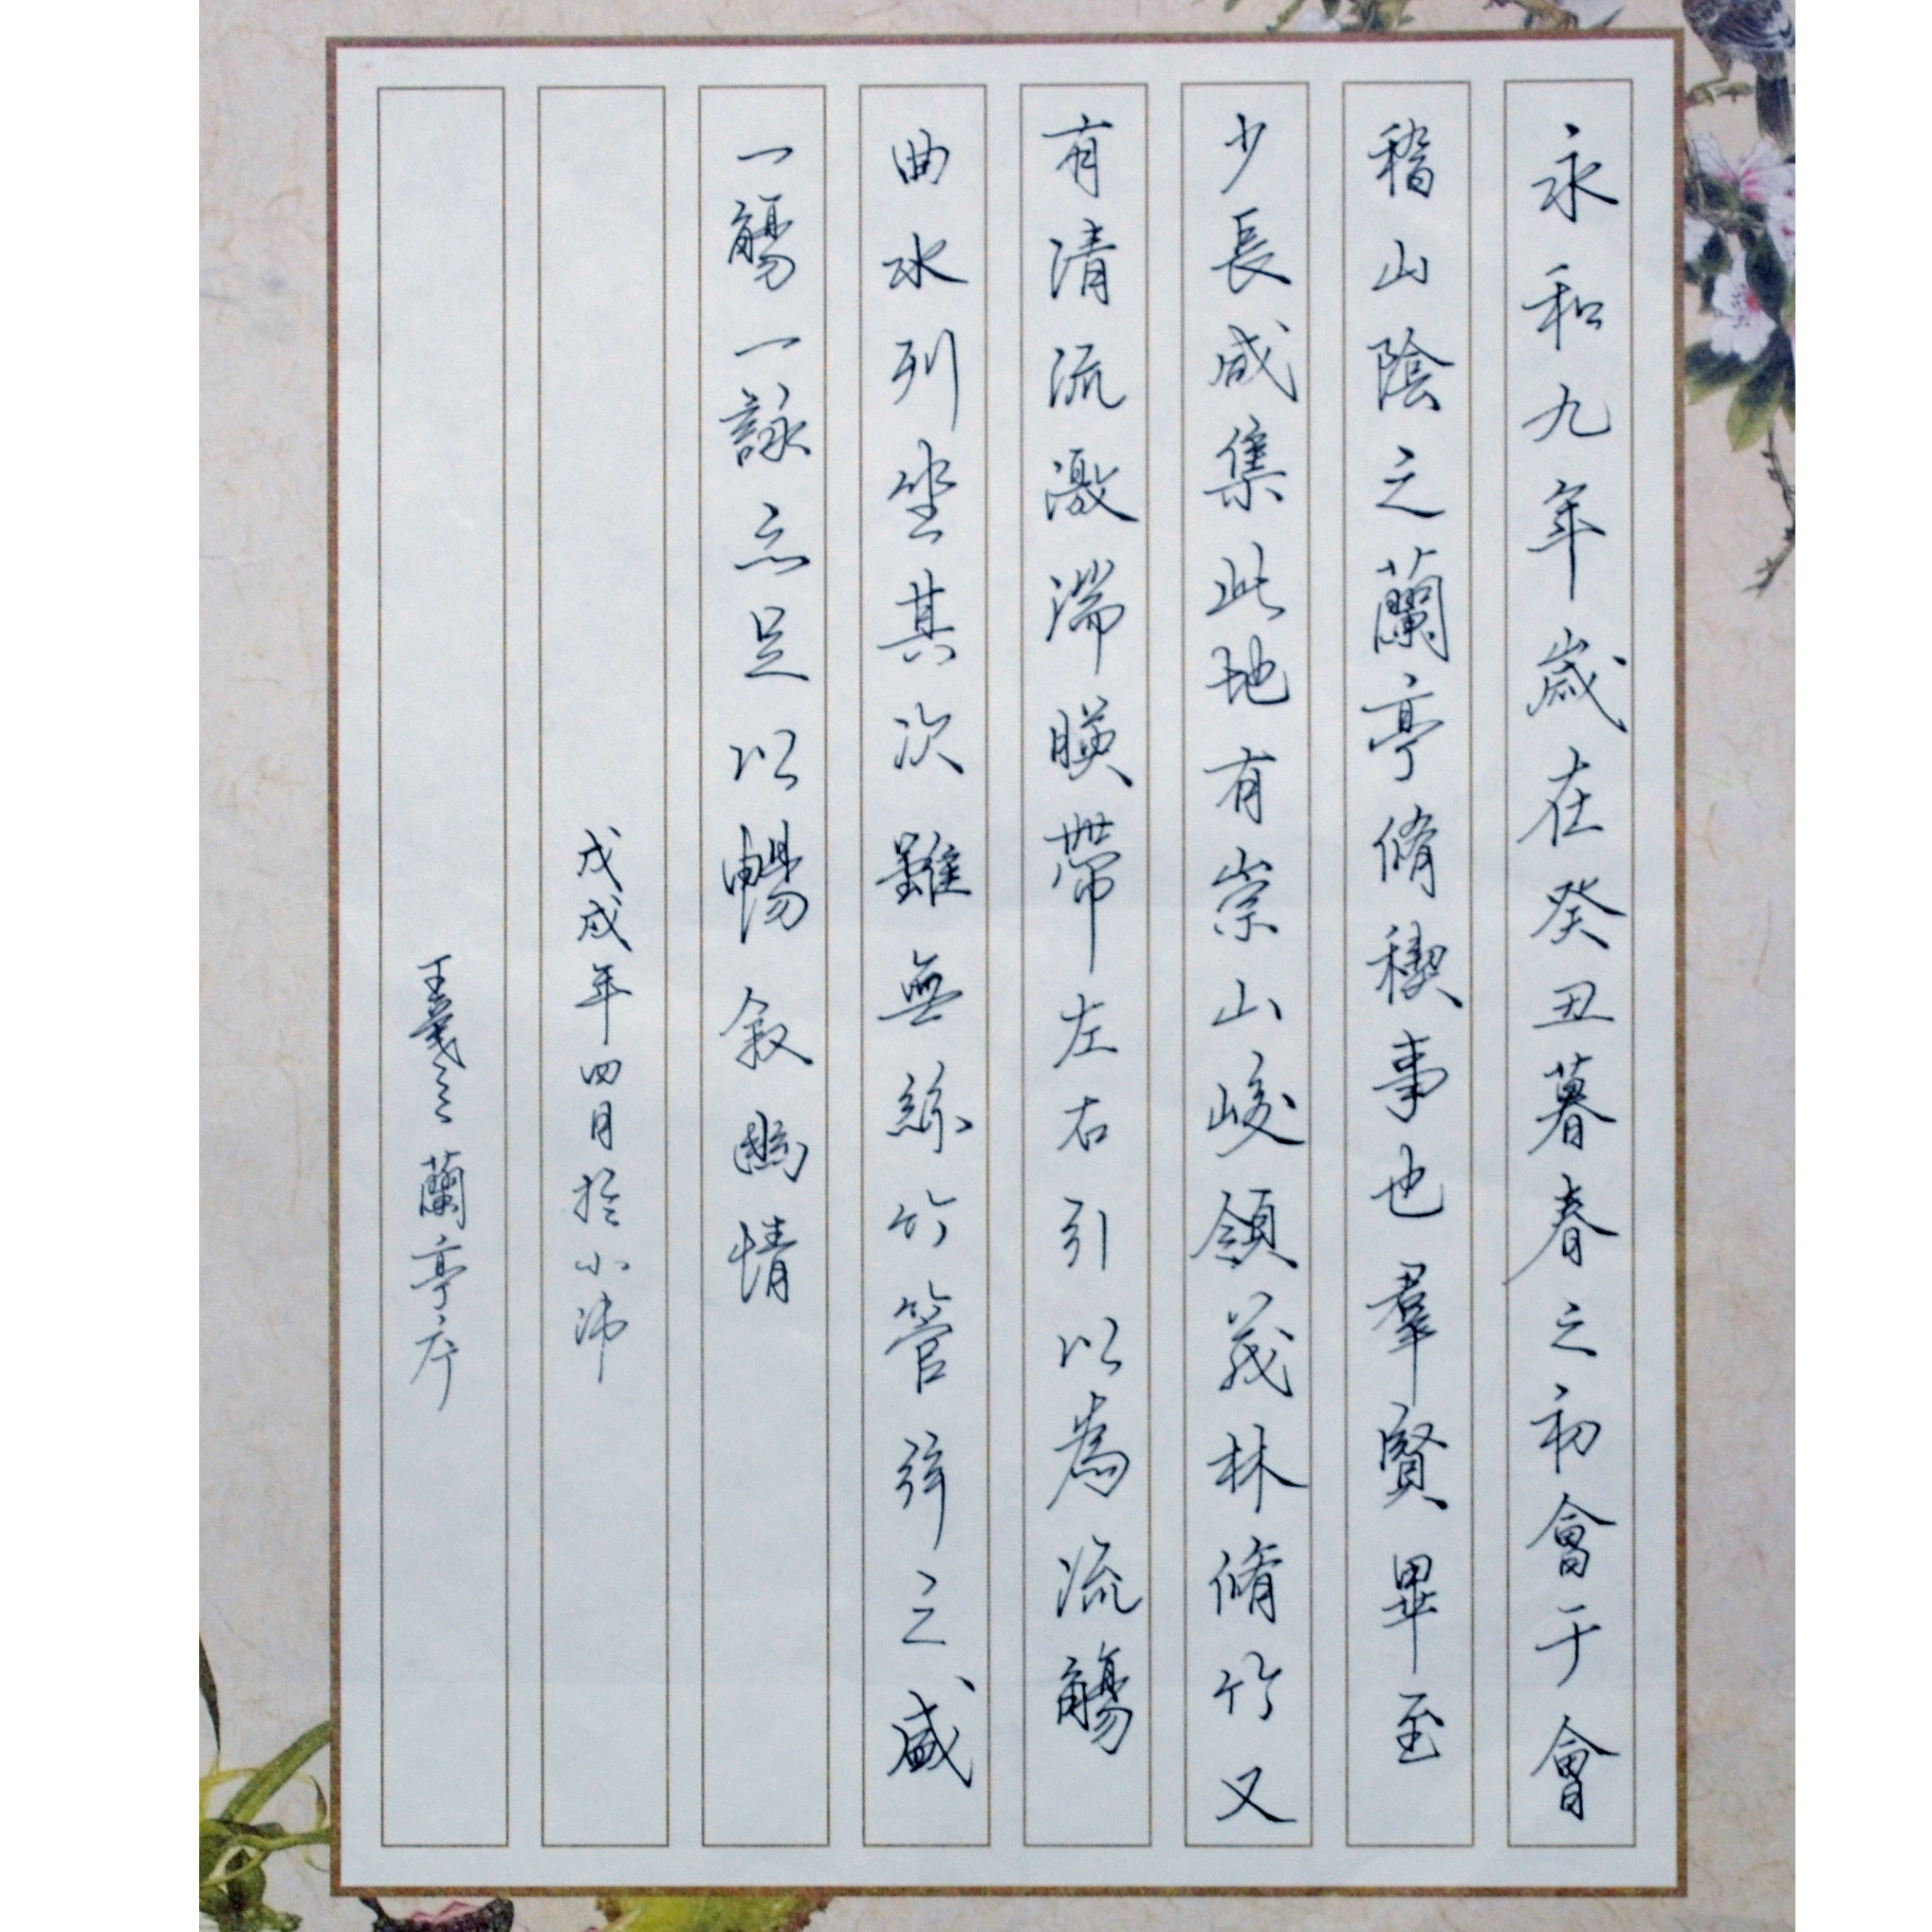 永和九年歲在癸丑暮春之初會于會
稽山陰之蘭亭脩稧事也羣賢畢至
少長咸集此地有崇山峻領茂林脩竹又
有清流激湍暎帶左右引以為流觴
曲水列坐其次雖無絲竹管弦之盛
一觴一詠亦足以暢叙幽情
戊戌年四月於小沛
王羲之蘭亭序